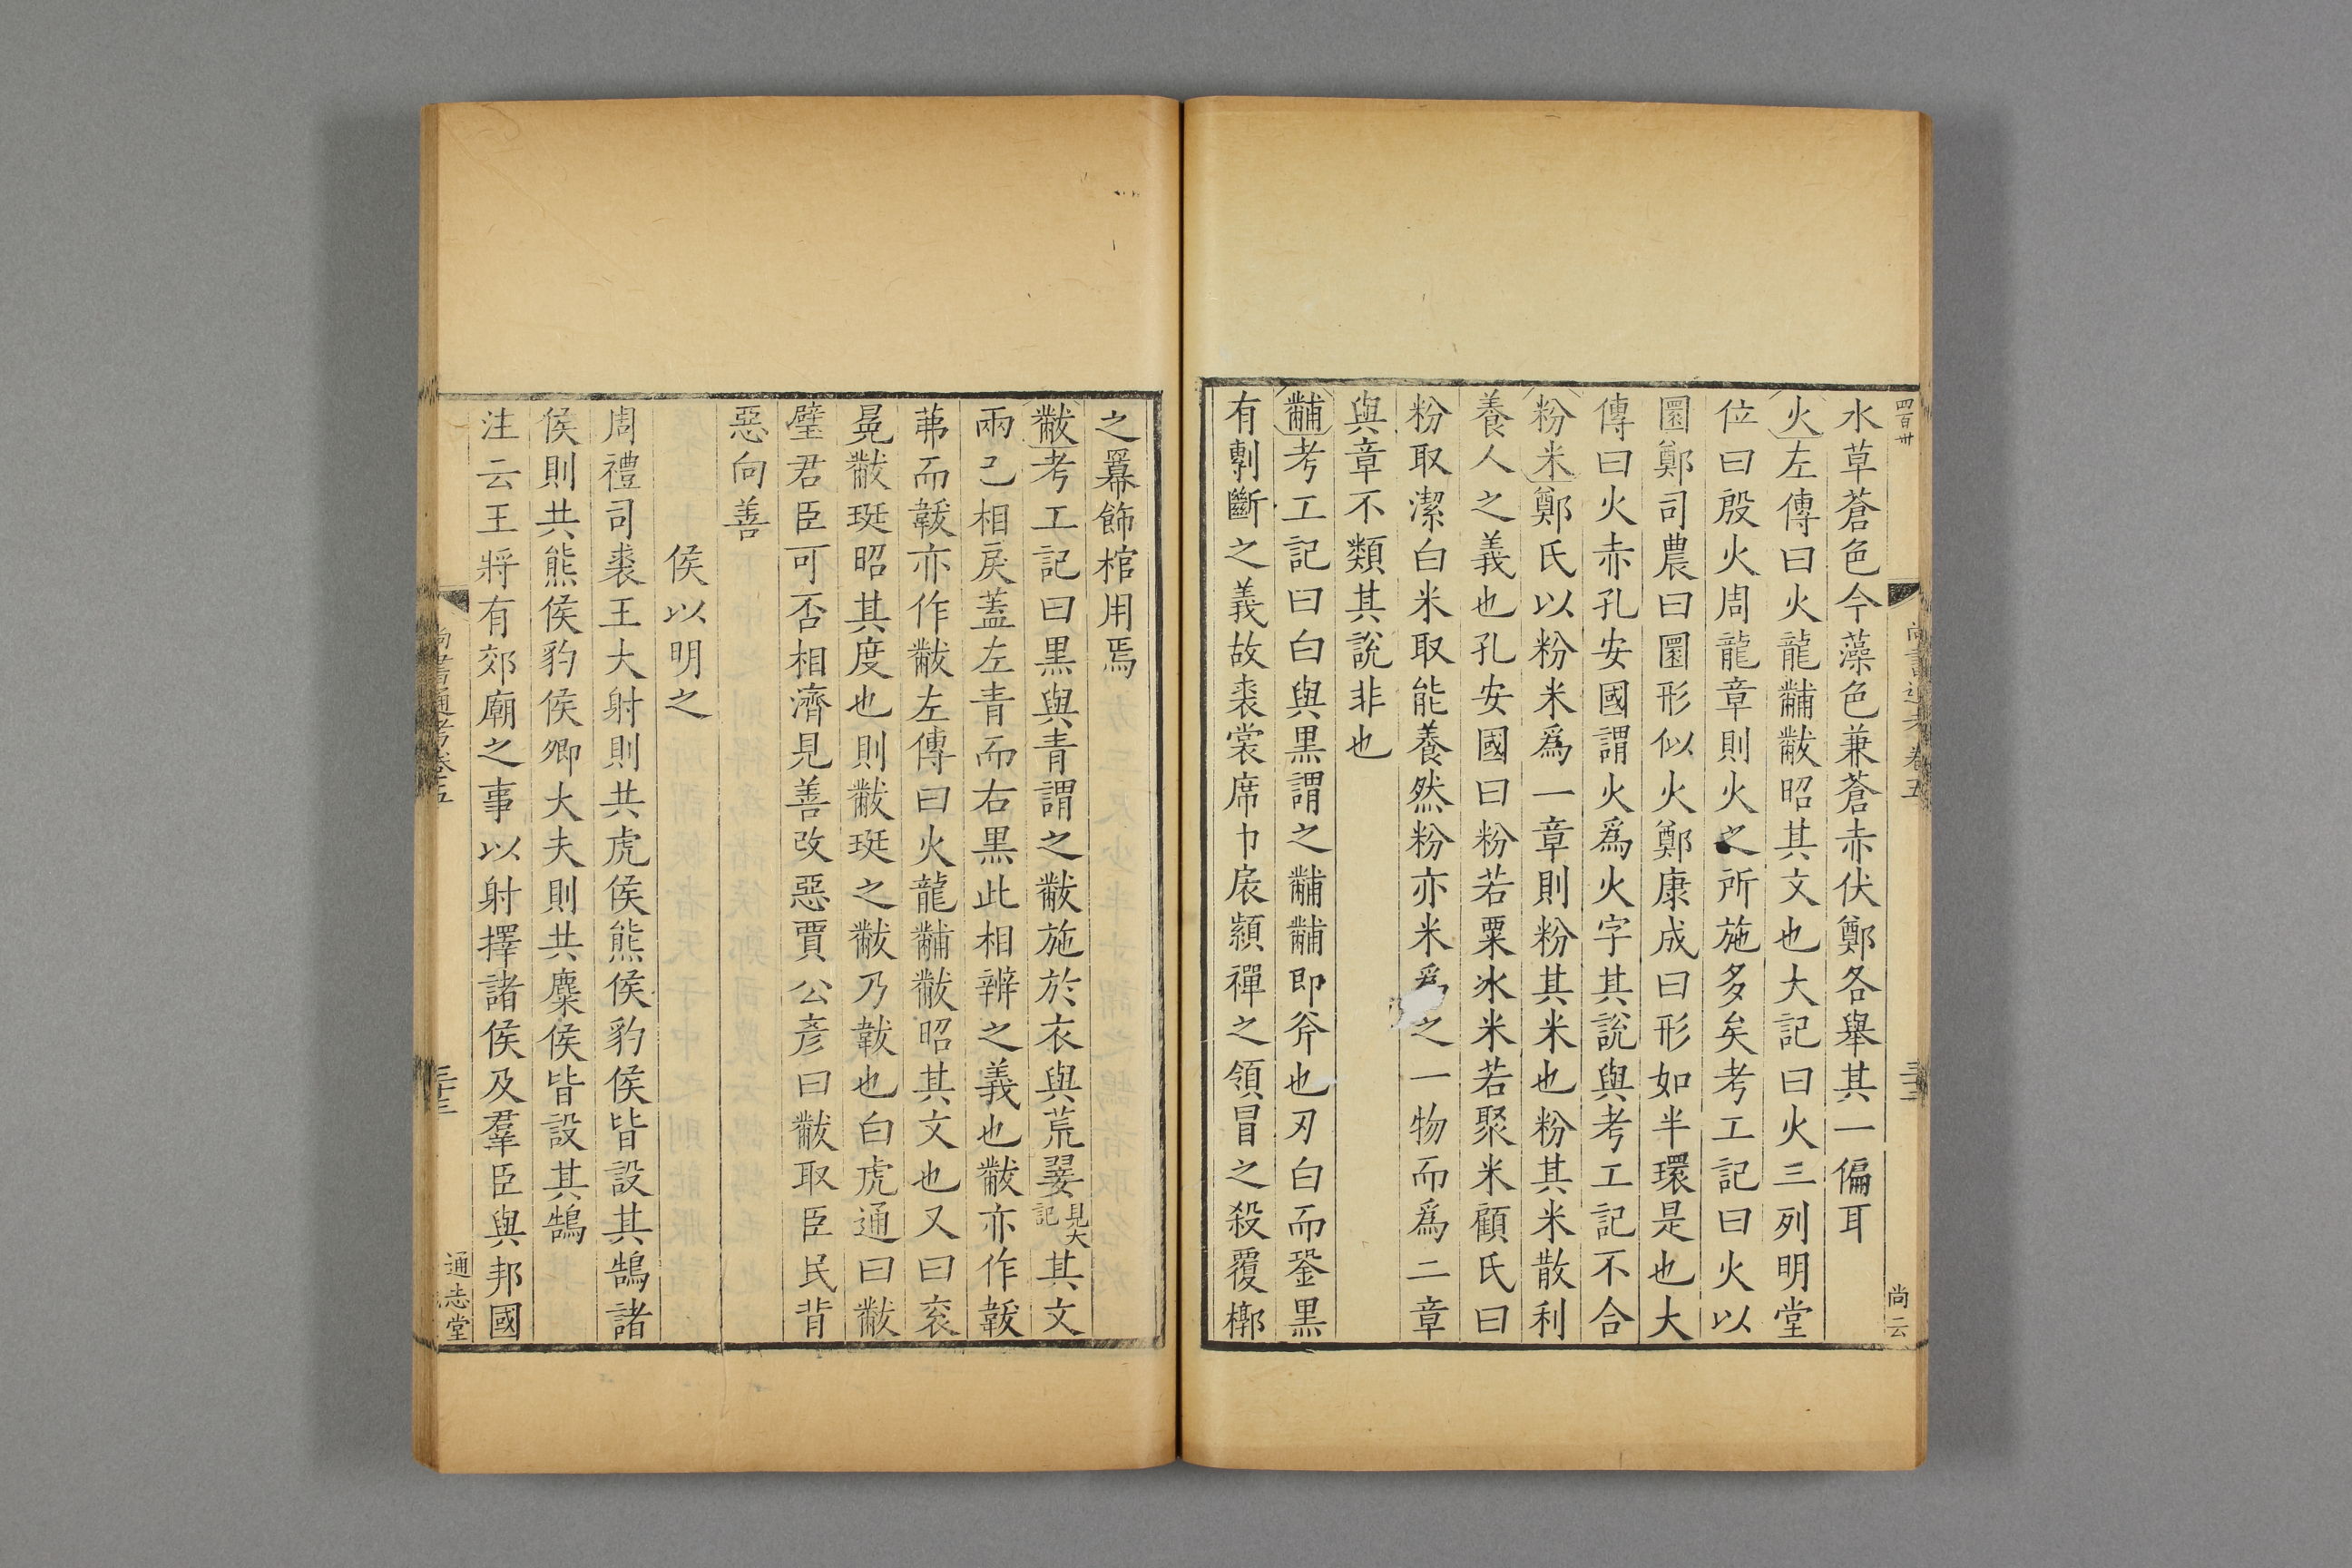 四百卅
水草蒼色今藻色兼蒼赤伏鄭各舉其一偏耳
火左傳曰火龍黼黻昭其文也大記曰火三列明堂
位曰殷火周龍章則火之所施多矣考工記曰火以
圜鄭司農曰圜形似火鄭康成曰形如半環是也大
傳曰火赤孔安國謂火爲火字其說與考工記不合
粉米鄭氏以粉米爲一章則粉其米也粉其米散利
養人之義也孔安國曰粉若粟冰米若聚米顧氏曰
粉取潔白米取能養然粉亦米爲之一物而爲二章
與章不類其說非也
黼考工記曰白與黑謂之黼黼即斧也刃白而銎黑
有剸斷之義故裘裳席巾扆纇襌之領冒之殺覆槨
尚書通考卷五
三十三
尚云
之冪飾棺用焉
黻考工記曰黑與青謂之黻施於衣與荒翣見大記其文
兩己相戾蓋左青而右黑此相辨之義也黻亦作韍
茀而韍亦作黻左傳曰火龍黼黻昭其文也又曰衮
冕黻珽昭其度也則黻珽之黻乃韍也白虎通曰黻
璧君臣可否相濟見善改惡賈公彥曰黻取臣民背
惡向善
侯以明之
周禮司裘王大射則共虎侯熊侯豹侯皆設其鵠諸
侯則共熊侯豹侯卿大夫則共麋侯皆設其鵠
注云王將有郊廟之事以射擇諸侯及羣臣與邦國
尚書通考卷五
三十三
通志堂